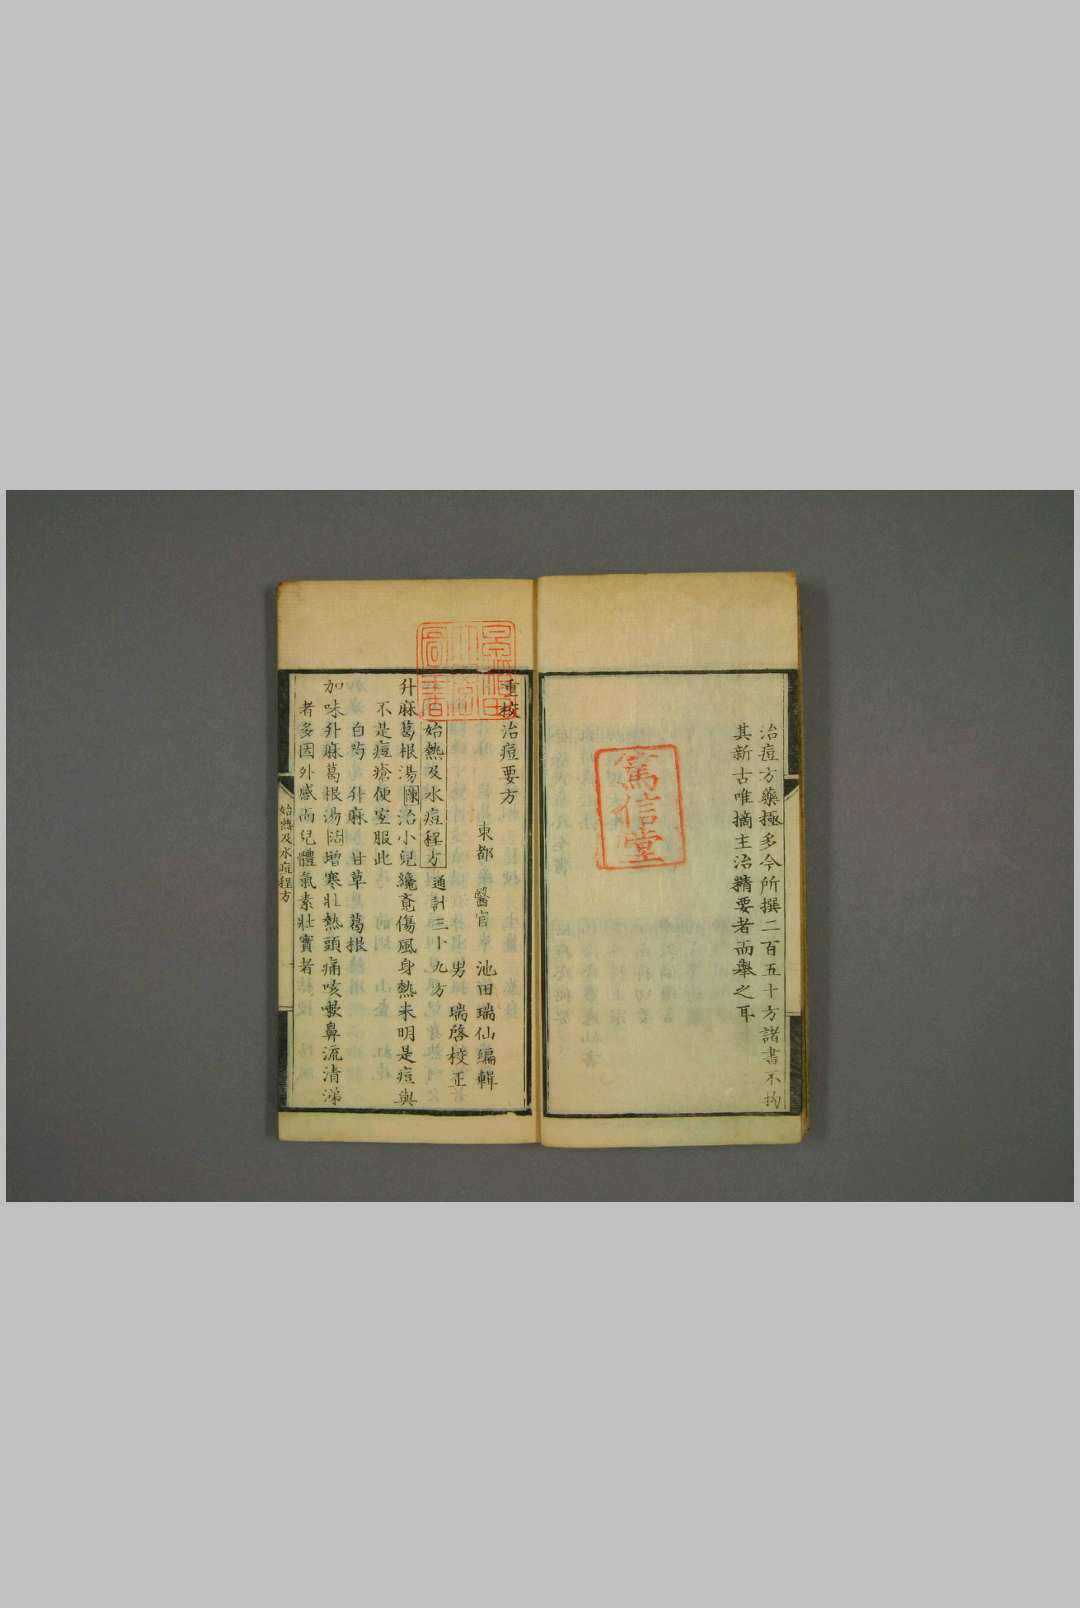 治痘方藥極多今所撰二百五十方諸書不拘
其新古唯摘主治精要者而舉之耳
篤信堂
重校治痘要方
東都 醫官 池田瑞仙編輯
男 瑞啓校正
始熱及水痘程方 通計三十九方
升麻葛根湯 治小兒纔覺傷風身熱未明是痘與
不是痘瘡便宜服此
白芍 升麻 甘草 葛根
加味升麻葛根湯 增寒壯熱頭痛咳嗽鼻流清涕
者多因外感而兒體氣素壯實者
始熱及水痘程方